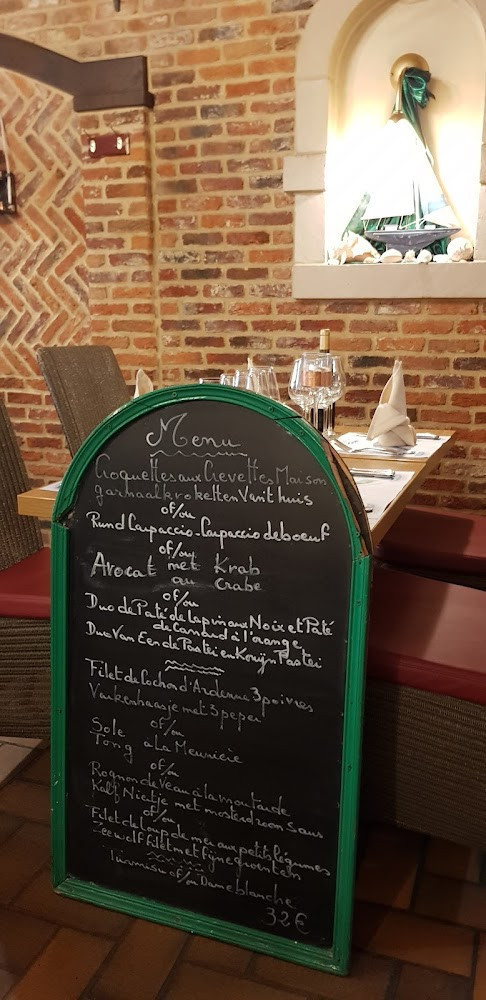 Menu
Croquettes aux Crevettes Maison
garnaalkroketten Van't huis
of/ou
Rund Carpaccio - Carpaccio de boeuf
of/ou
Avocat met Krab
au Crabe
of/ou
Duo de Paté de Lapin aux Noix et Paté
de Canard à l'orange
Duo Van Eende Pastei en Konijn Pastei
Filet de Cochon d'Ardenne 3 poivres
Varkenhaasje met 3 peper
of/ou
Sole
Tong à La Meunière
of/ou
Rognon de Veau à la moutarde
Kalf Niertje met mosterdroom Saus
of/ou
Filet de Loup de mer aux petits légumes
Zeewolf filet met fijne groenten
Tiramisu of/ou Dame blanche
32€